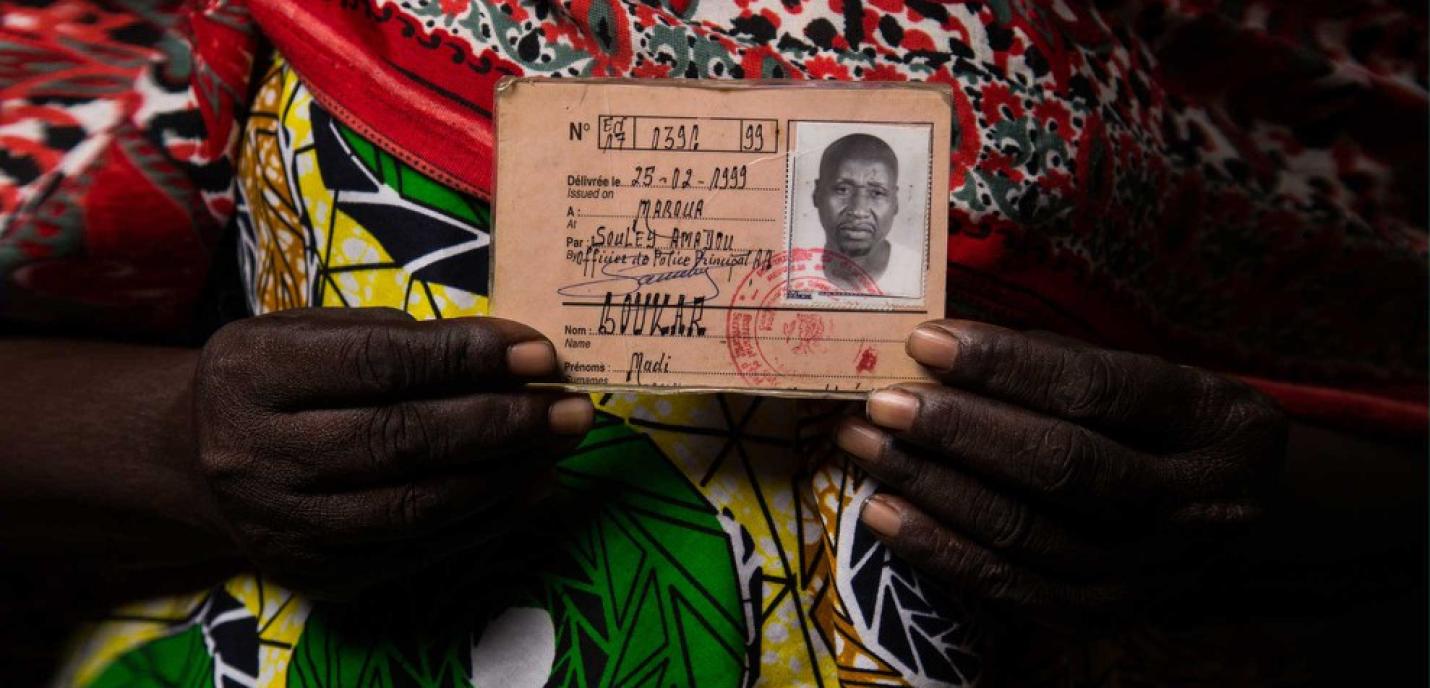 N° Ed 17 039[ 99
Délivrée le 25-02-1999
Issued on
A : MAROUA
At
Par : SOULEY AMADOU
By Officier de Police Principal
Nom : BOUKAR
Name
Prénoms : Madi
Surnames